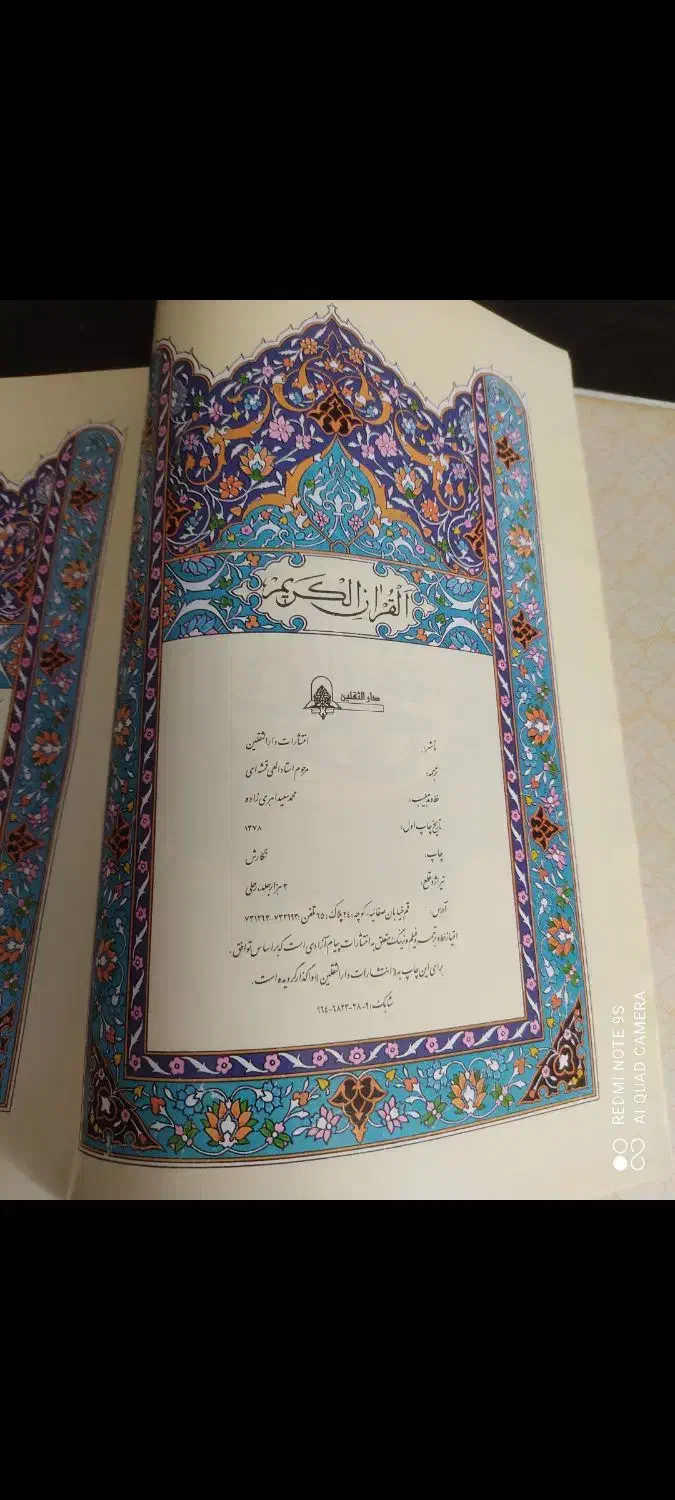 اَلْقُرْاٰنُ الْكَرِيمُ
دار الثقلین
ناشر: انتشارات دارالثقلین
ترجمه: مرحوم استاد الهی قمشه‌ای
خط و تذهیب: محمد سعید امیری زاده
تاریخ چاپ اول: ۱۳۷۸
چاپ: نگارش
تیراژ و قطع: ۳ هزار جلد، رحلی
آدرس: قم خیابان صفائیه - کوچه: ۲۴ پلاک: ۶۵ تلفن: ۷۳۲۹۹۳ - ۷۳۱۲۶۳
امتیاز خط و ترجمه و فیلم و زینک متعلق به انتشارات پیام آزادی است که بر اساس توافق،
برای این چاپ به «انتشارات دارالثقلین» واگذار گردیده است.
شابک: ۹-۲۸-۶۸۲۳-۹۶۴
REDMI NOTE 9S
AI QUAD CAMERA